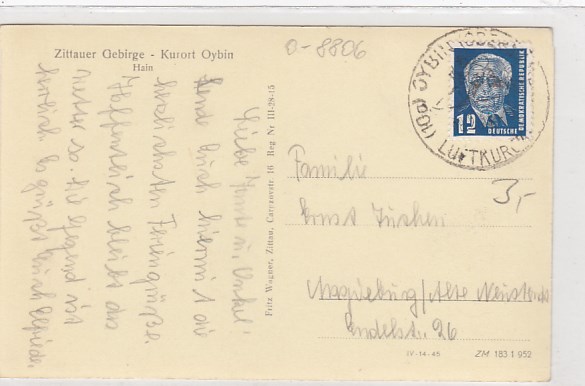 Zittauer Gebirge - Kurort Oybin
Hain
O-8806
Liebe Tante u. Onkel!
Sende Euch hiermit die
herzlichsten Feriengrüße.
Hoffentlich bleibt das
Wetter so. Die Gegend ist
herrlich. Es grüßt Euch
Fritz Wagner, Zittau, 16 Reg Nr III-28-15
12
DEUTSCHE
DEMOKRATISCHE REPUBLIK
(10b) OYBIN
LUFTKURORT
3,-
Familie
Ernst
Magdeburg/Alte Neustadt
26
IV-14-45
ZM 183 1 952